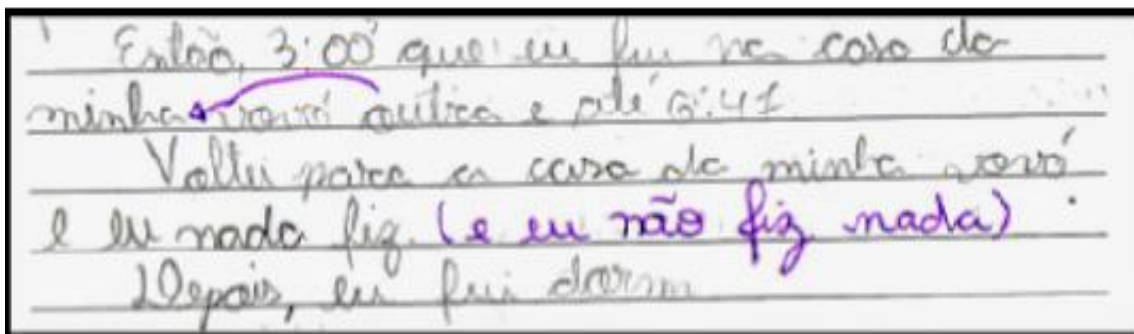 Então, 3:00 que eu fui na casa da
minha vovó outra e até 6:41
Voltei para a casa da minha vovó
e eu nada fiz. (e eu não fiz nada)
Depois, eu fui dorm